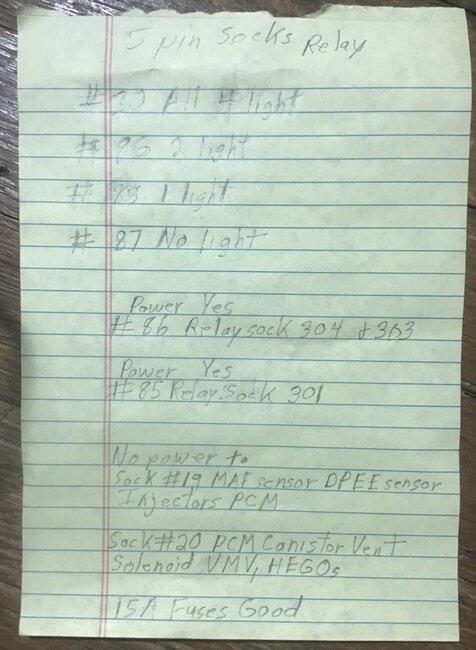 5 pin Socks Relay
#30 All 4 light
#86 2 light
#85 1 light
#87 No light
Power Yes
#86 Relay sock 304 & 303
Power Yes
#85 Relay Sock 301
No power to
Sock #19 MAF sensor DPEE sensor
Injectors PCM
Sock #20 PCM Canistor Vent
Solenoid VMV, HEGOs
15A Fuses Good